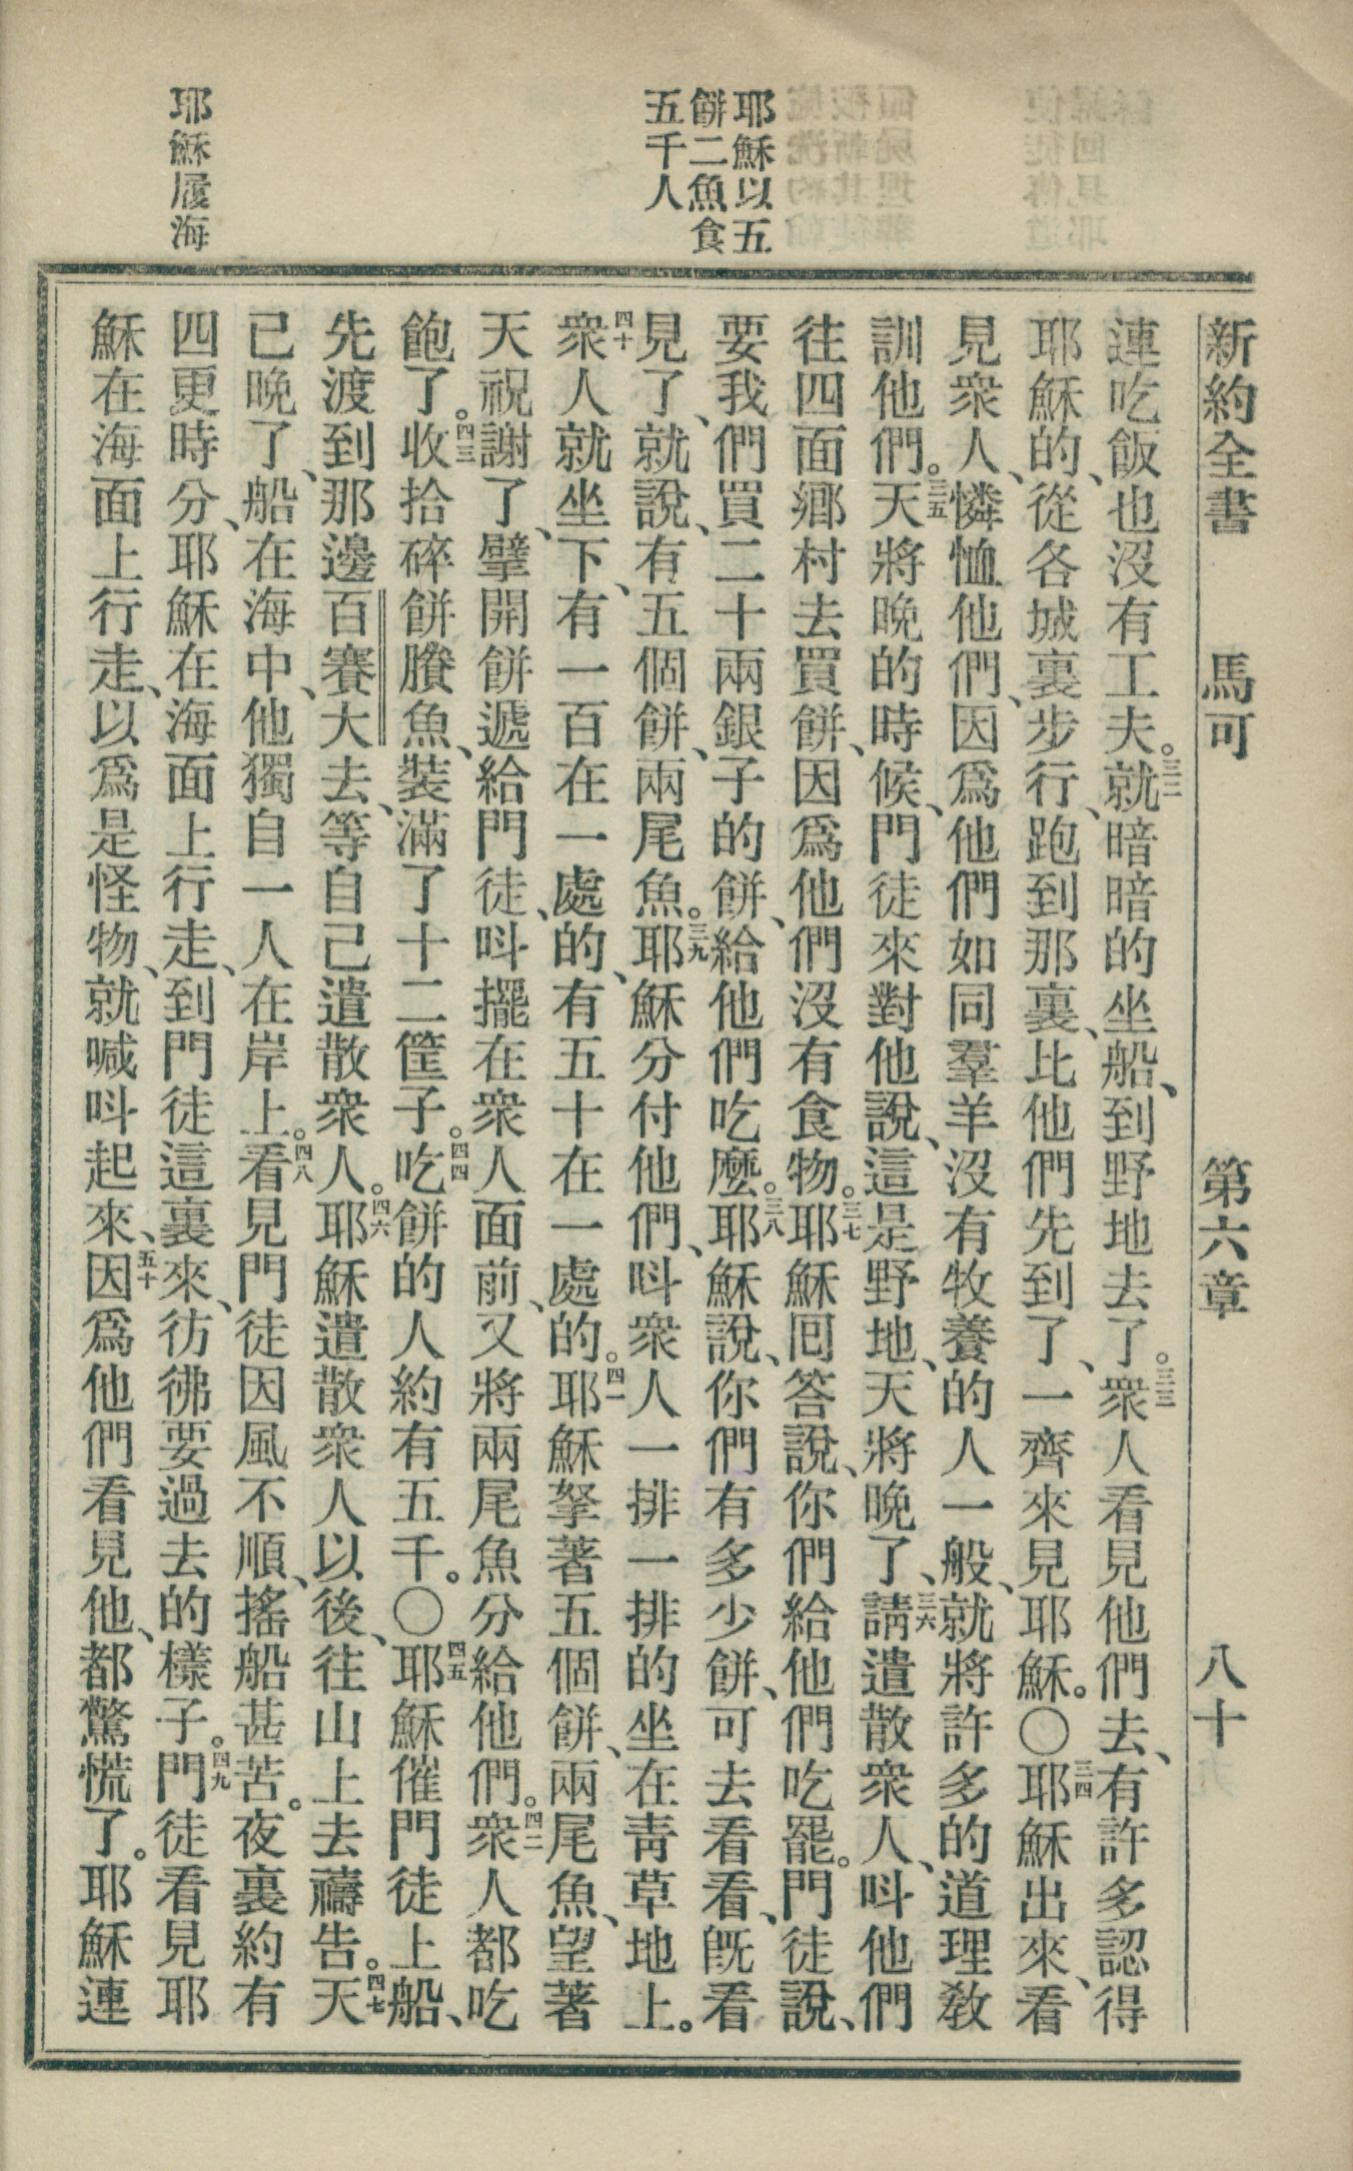 新約全書 馬可 第六章 八十
耶穌以五
餅二魚食
五千人
耶穌履海
連吃飯也沒有工夫。三二就暗暗的坐船、到野地去了。三三衆人看見他們去、有許多認得
耶穌的、從各城裏步行、跑到那裏、比他們先到了、一齊來見耶穌。〇三四耶穌出來、看
見衆人、憐恤他們、因爲他們如同羣羊沒有牧養的人一般、就將許多的道理敎
訓他們。三五天將晚的時候、門徒來對他說、這是野地、天將晚了、三六請遣散衆人、呌他們
往四面鄉村去買餅、因爲他們沒有食物。三七耶穌回答說、你們給他們吃罷。門徒說、
要我們買二十兩銀子的餅、給他們吃麼。三八耶穌說、你們有多少餅、可去看看、旣看
見了、就說、有五個餅、兩尾魚。三九耶穌分付他們、呌衆人一排一排的坐在靑草地上。
四十衆人就坐下、有一百在一處的、有五十在一處的。四一耶穌拏著五個餅、兩尾魚、望著
天祝謝了、擘開餅遞給門徒、呌擺在衆人面前、又將兩尾魚分給他們。四二衆人都吃
飽了。四三收拾碎餅賸魚、裝滿了十二筐子。四四吃餅的人約有五千。〇四五耶穌催門徒上船、
先渡到那邊百賽大去、等自己遣散衆人。四六耶穌遣散衆人以後、往山上去禱告。四七天
已晚了、船在海中、他獨自一人在岸上。四八看見門徒因風不順、搖船甚苦。夜裏約有
四更時分、耶穌在海面上行走、到門徒這裏來、彷彿要過去的樣子。四九門徒看見耶
穌在海面上行走、以爲是怪物、就喊呌起來、五十因爲他們看見他、都驚慌了。耶穌連